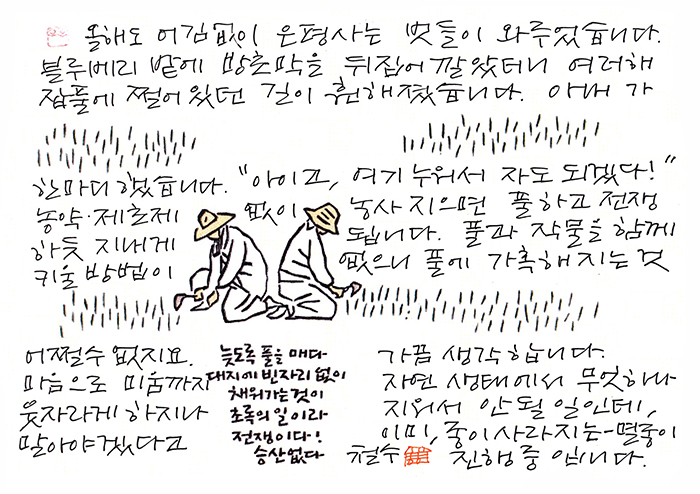 올해도 어김없이 은평사는 벗들이 와주었습니다.
블루베리 밭에 방초막을 뒤집어 깔았더니 여러해
잡풀에 쩔어 있던 길이 훤해졌습니다. 아내가
한마디 했습니다. "아이고, 여기 누워서 자도 되겠다!"
농약·제초제 없이 농사 지으면 풀하고 전쟁
하듯 지내게 됩니다. 풀과 작물을 함께
키울 방법이 없으니 풀에 가혹해지는 것
어쩔수 없지요. 가끔 생각합니다.
마음으로 미움까지 자연 생태에서 무엇하나
웃자라게 하지나 지워서 안될 일인데,
말아야겠다고 이미, 종이 사라지는-멸종이
진행중 입니다.
늦도록 풀을 매다
대지에 빈자리 없이
채워가는것이
초록의 일이라
전쟁이다!
승산없다
철수